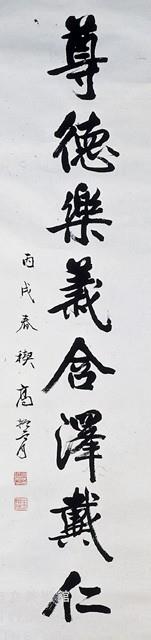 尊德樂義含澤戴仁
丙戌春禊高